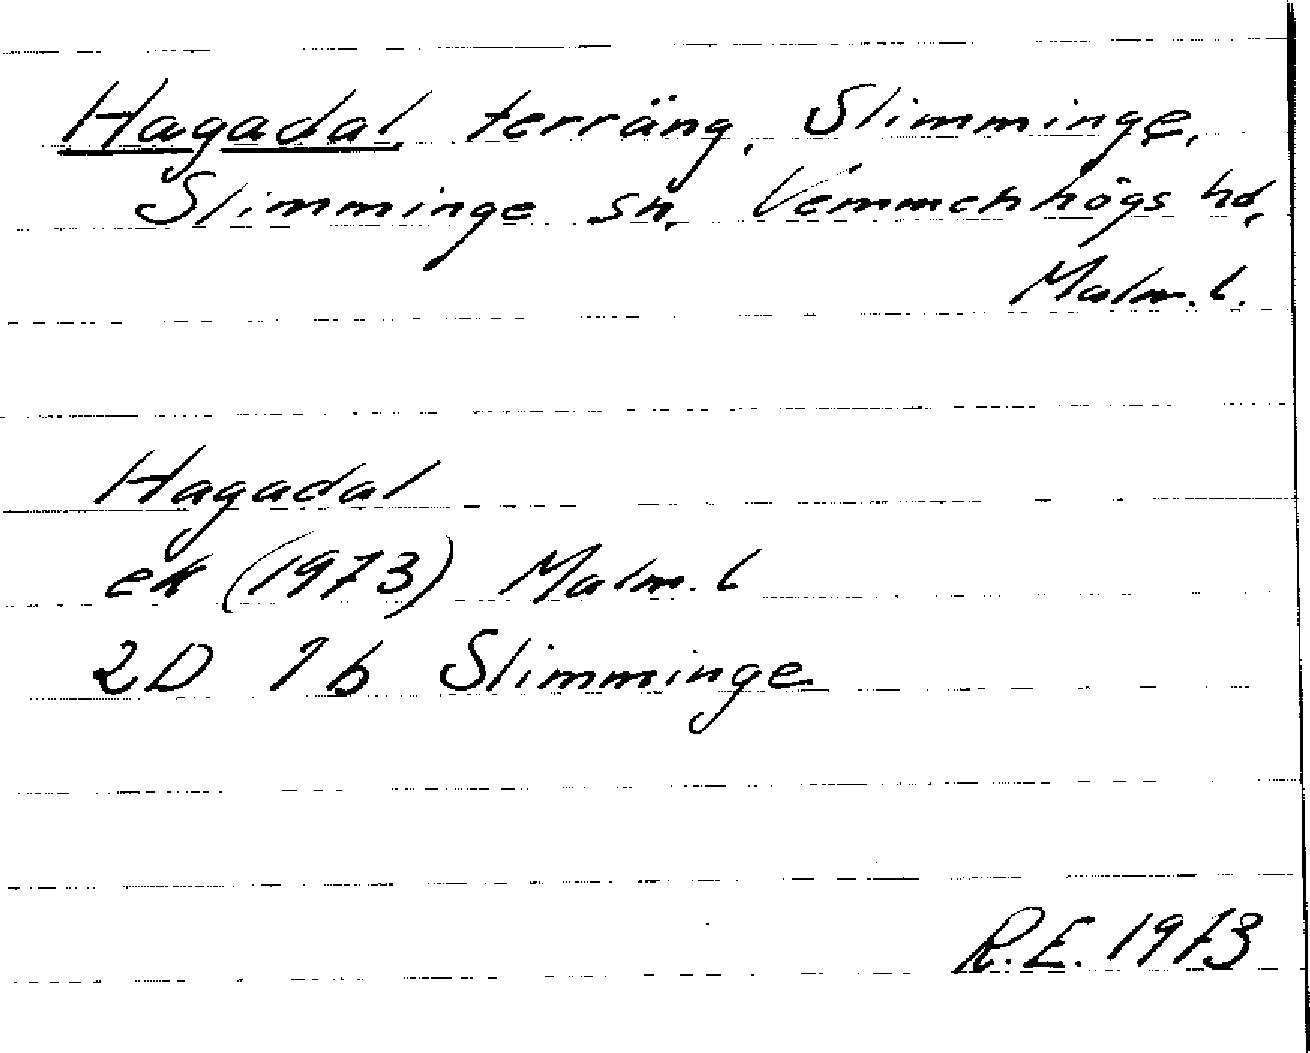 Hagadal, terräng, Slimminge,
Slimminge sn, Vemmenhögs hd,
Malm. l.
Hagadal
ek (1973) Malm. l
2D 1b Slimminge
R.E. 1973